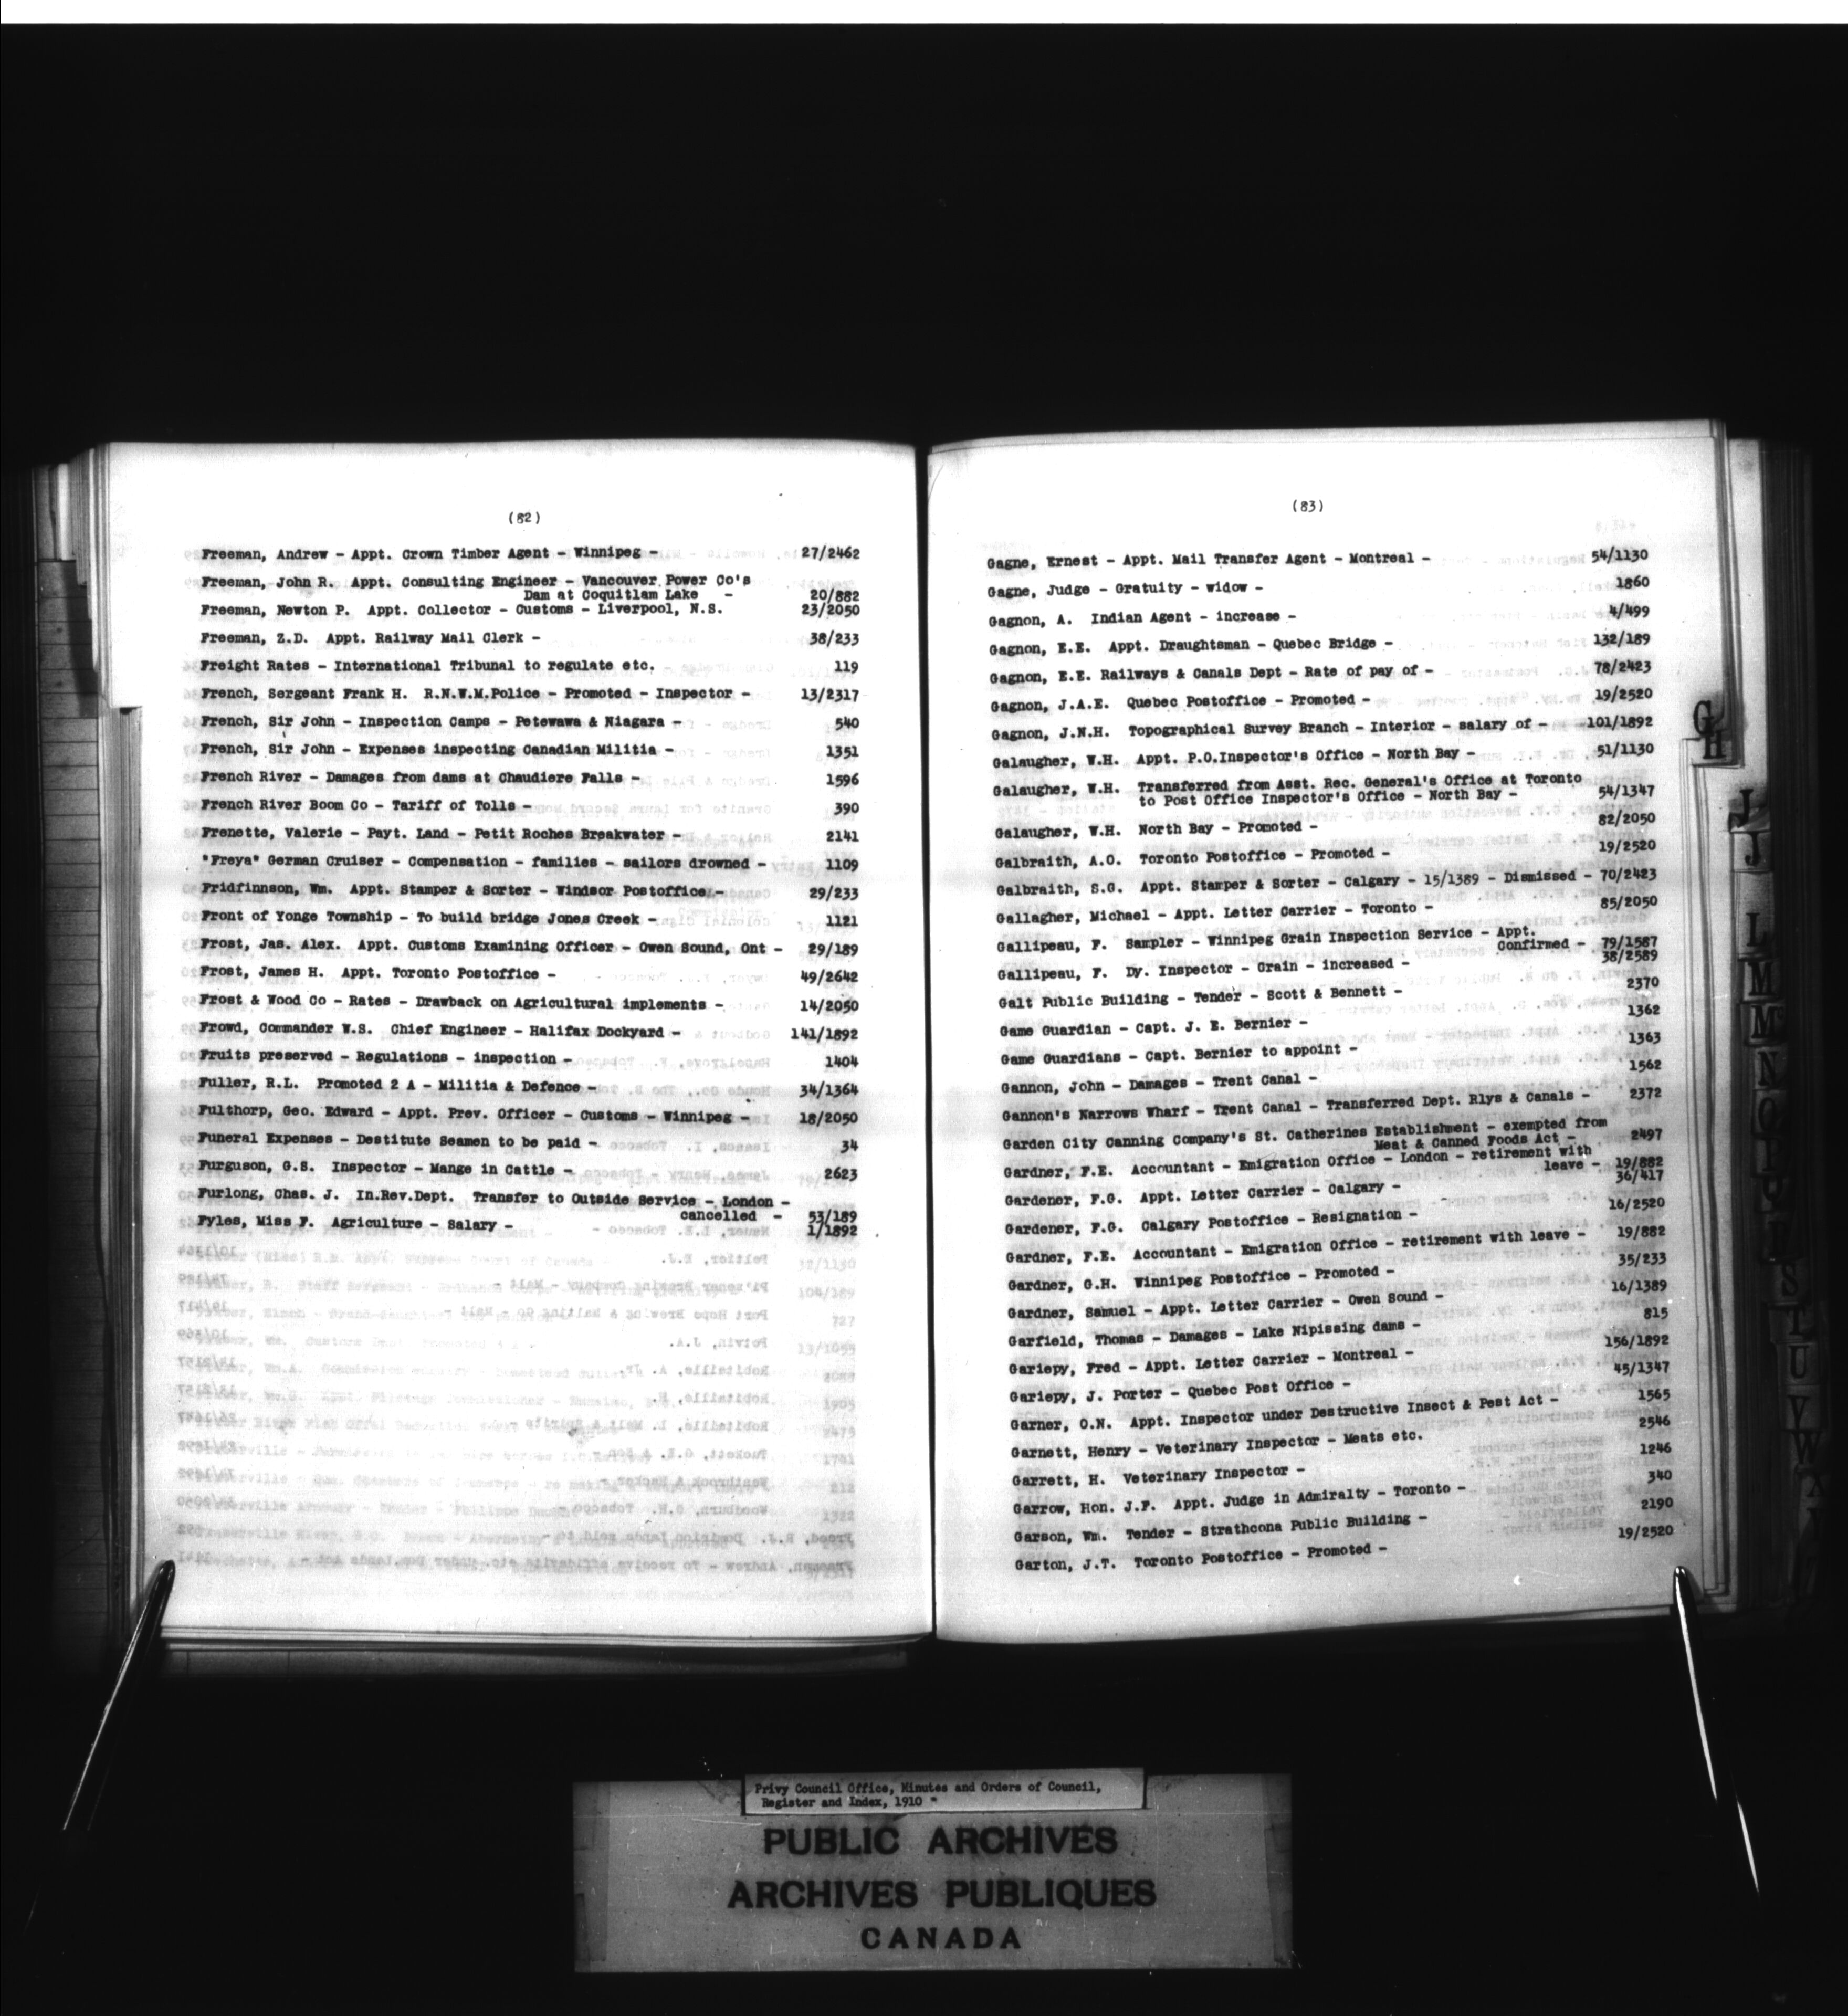 (82)
Freeman, Andrew - Appt. Crown Timber Agent - Winnipeg - 27/2462
Freeman, John R. Appt. Consulting Engineer - Vancouver Power Co's
Dam at Coquitlam Lake - 20/882
Freeman, Newton P. Appt. Collector - Customs - Liverpool, N.S. 23/2050
Freeman, Z.D. Appt. Railway Mail Clerk - 38/233
Freight Rates - International Tribunal to regulate etc. 119
French, Sergeant Frank H. R.N.W.M.Police - Promoted - Inspector - 13/2317
French, Sir John - Inspection Camps - Petewawa & Niagara - 540
French, Sir John - Expenses inspecting Canadian Militia - 1351
French River - Damages from dams at Chaudiere Falls - 1596
French River Boom Co - Tariff of Tolls - 390
Frenette, Valerie - Payt. Land - Petit Roches Breakwater - 2141
"Freya" German Cruiser - Compensation - families - sailors drowned - 1109
Fridfinnson, Wm. Appt. Stamper & Sorter - Windsor Postoffice - 29/233
Front of Yonge Township - To build bridge Jones Creek - 1121
Frost, Jas. Alex. Appt. Customs Examining Officer - Owen Sound, Ont - 29/189
Frost, James H. Appt. Toronto Postoffice - 49/2642
Frost & Wood Co - Rates - Drawback on Agricultural implements - 14/2050
Frowd, Commander W.S. Chief Engineer - Halifax Dockyard - 141/1892
Fruits preserved - Regulations - inspection - 1404
Fuller, R.L. Promoted 2 A - Militia & Defence - 34/1364
Fulthorp, Geo. Edward - Appt. Prev. Officer - Customs - Winnipeg - 18/2050
Funeral Expenses - Destitute Seamen to be paid - 34
Furguson, G.S. Inspector - Mange in Cattle - 2623
Furlong, Chas. J. In.Rev.Dept. Transfer to Outside Service - London -
cancelled - 53/189
Fyles, Miss F. Agriculture - Salary - 1/1892
(83)
Gagne, Ernest - Appt. Mail Transfer Agent - Montreal - 54/1130
Gagne, Judge - Gratuity - widow - 1860
Gagnon, A. Indian Agent - increase - 4/499
Gagnon, E.E. Appt. Draughtsman - Quebec Bridge - 132/189
Gagnon, E.E. Railways & Canals Dept - Rate of pay of - 78/2423
Gagnon, J.A.E. Quebec Postoffice - Promoted - 19/2520
Gagnon, J.N.H. Topographical Survey Branch - Interior - salary of - 101/1892
Galaugher, W.H. Appt. P.O.Inspector's Office - North Bay - 51/1130
Galaugher, W.H. Transferred from Asst. Rec. General's Office at Toronto
to Post Office Inspector's Office - North Bay - 54/1347
Galaugher, W.H. North Bay - Promoted - 82/2050
Galbraith, A.O. Toronto Postoffice - Promoted - 19/2520
Galbraith, S.G. Appt. Stamper & Sorter - Calgary - 15/1389 - Dismissed - 70/2423
Gallagher, Michael - Appt. Letter Carrier - Toronto - 85/2050
Gallipeau, F. Sampler - Winnipeg Grain Inspection Service - Appt.
Confirmed - 79/1587
Gallipeau, F. Dy. Inspector - Grain - increased - 38/2589
Galt Public Building - Tender - Scott & Bennett - 2370
Game Guardian - Capt. J. E. Bernier - 1362
Game Guardians - Capt. Bernier to appoint - 1363
Gannon, John - Damages - Trent Canal - 1562
Gannon's Narrows Wharf - Trent Canal - Transferred Dept. Rlys & Canals - 2372
Garden City Canning Company's St. Catherines Establishment - exempted from
Meat & Canned Foods Act - 2497
Gardner, F.E. Accountant - Emigration Office - London - retirement with
leave - 19/882
Gardener, F.G. Appt. Letter Carrier - Calgary - 36/417
Gardener, F.G. Calgary Postoffice - Resignation - 16/2520
Gardner, F.E. Accountant - Emigration Office - retirement with leave - 19/882
Gardner, G.H. Winnipeg Postoffice - Promoted - 35/233
Gardner, Samuel - Appt. Letter Carrier - Owen Sound - 16/1389
Garfield, Thomas - Damages - Lake Nipissing dams - 815
Gariepy, Fred - Appt. Letter Carrier - Montreal - 156/1892
Gariepy, J. Porter - Quebec Post Office - 45/1347
Garner, O.N. Appt. Inspector under Destructive Insect & Pest Act - 1565
Garnett, Henry - Veterinary Inspector - Meats etc. 2546
Garrett, H. Veterinary Inspector - 1246
Garrow, Hon. J.F. Appt. Judge in Admiralty - Toronto - 340
Garson, Wm. Tender - Strathcona Public Building - 2190
Garton, J.T. Toronto Postoffice - Promoted - 19/2520
G
H
J
J
L
M
M
N
S
T
U
V
W
X
Privy Council Office, Minutes and Orders of Council,
Register and Index, 1910
PUBLIC ARCHIVES
ARCHIVES PUBLIQUES
CANADA